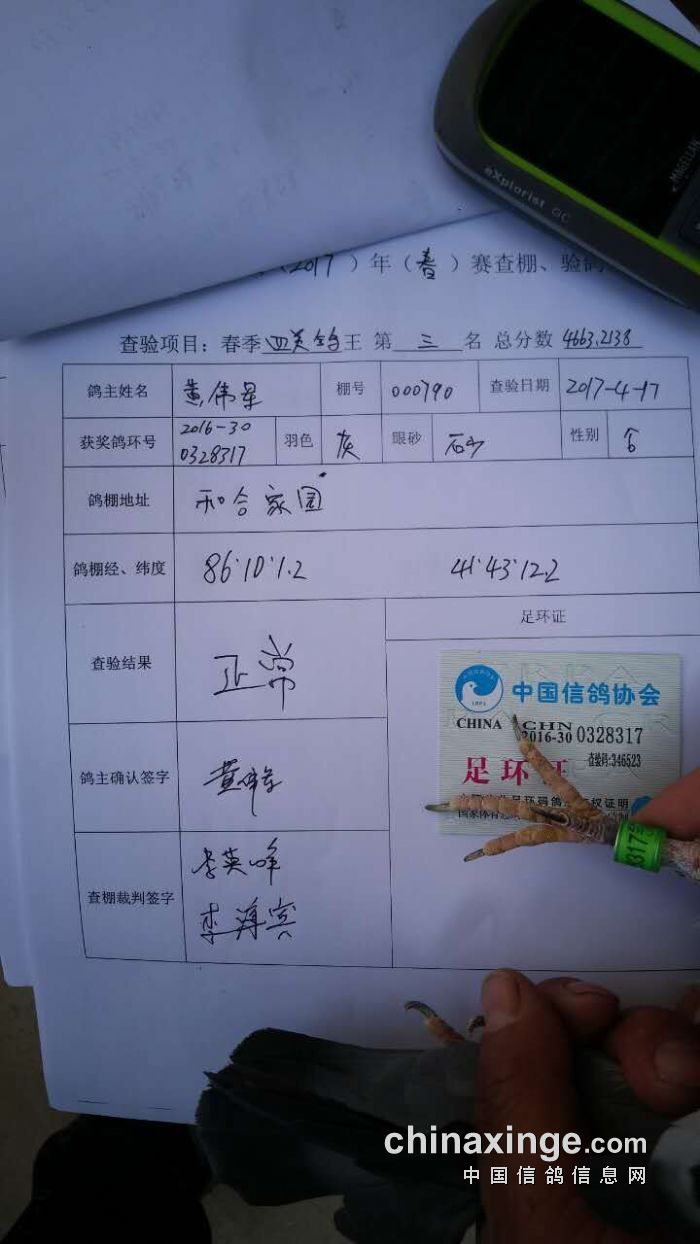 eXplorist GC
（2017）年（春）赛查棚、验鸽
查验项目：春季四关鸽王 第三名 总分数 4663.2138
鸽主姓名 黄伟军 棚号 000790 查验日期 2017-4-17
获奖鸽环号 2016-30 0328317 羽色 灰 眼砂 石少 性别
鸽棚地址 和合家园
鸽棚经、纬度 86°10'1.2 41°43'12.2
查验结果 正常
足环证
中国信鸽协会
CHINA CHN
2016-30 0328317
查验码:346523
足环证
鸽主确认签字 黄伟军
查棚裁判签字 李英峰
李海宾
317
chinaxinge.com
中国信鸽信息网